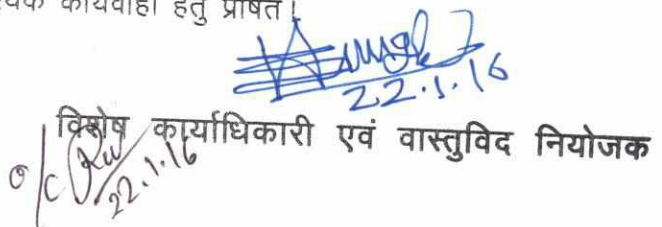 कार्यवाही हेतु प्रेषित।
22.1.16
विशेष कार्याधिकारी एवं वास्तुविद नियोजक
o/c
22.1.16